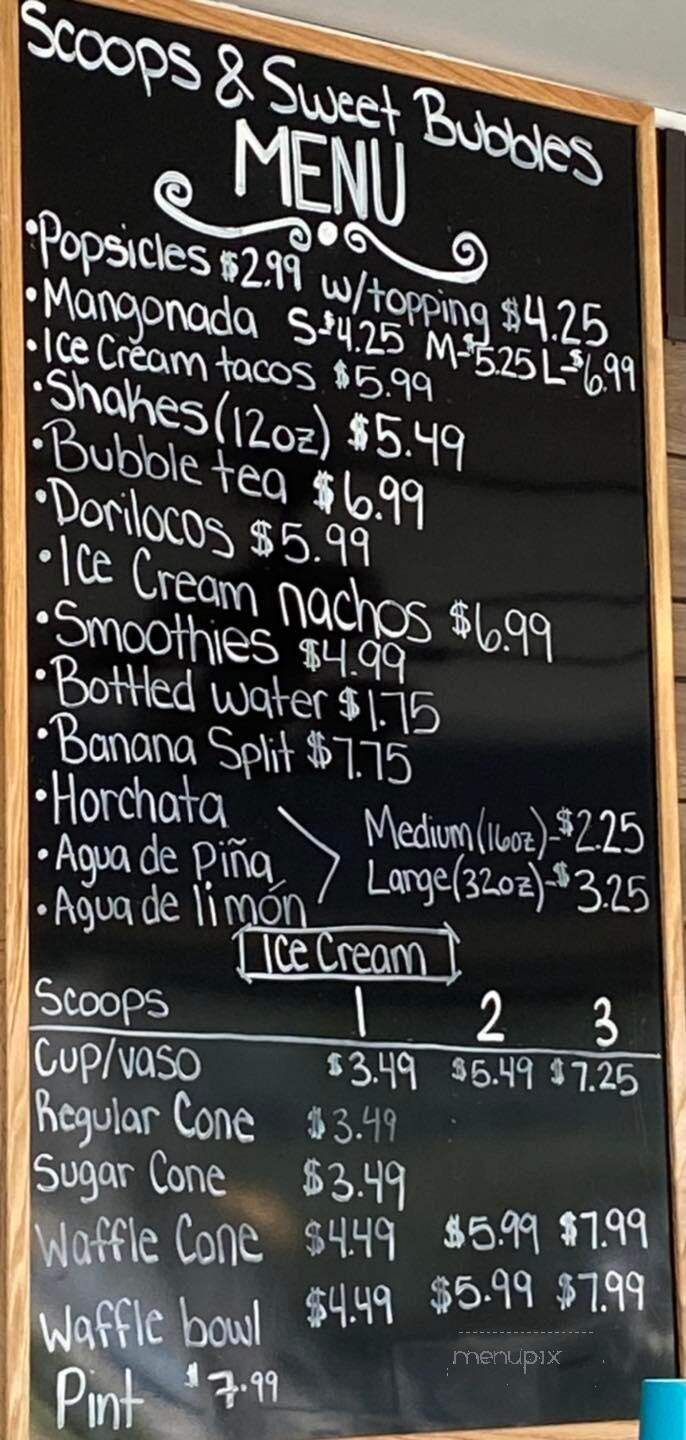 Scoops & Sweet Bubbles
MENU
•Popsicles $2.99 w/topping $4.25
•Mangonada S-$4.25 M-$5.25 L-$6.99
•Ice Cream tacos $5.99
•Shakes (12oz) $5.49
•Bubble tea $6.99
•Dorilocos $5.99
•Ice Cream nachos $6.99
•Smoothies $4.99
•Bottled water $1.75
•Banana Split $7.75
•Horchata
•Agua de Piña
•Agua de limón
Medium (16oz)-$2.25
Large (32oz)-$3.25
Ice Cream
Scoops 1 2 3
Cup/vaso $3.49 $5.49 $7.25
Regular Cone $3.49
Sugar Cone $3.49
Waffle Cone $4.49 $5.99 $7.99
Waffle bowl $4.49 $5.99 $7.99
Pint $7.99
menupix